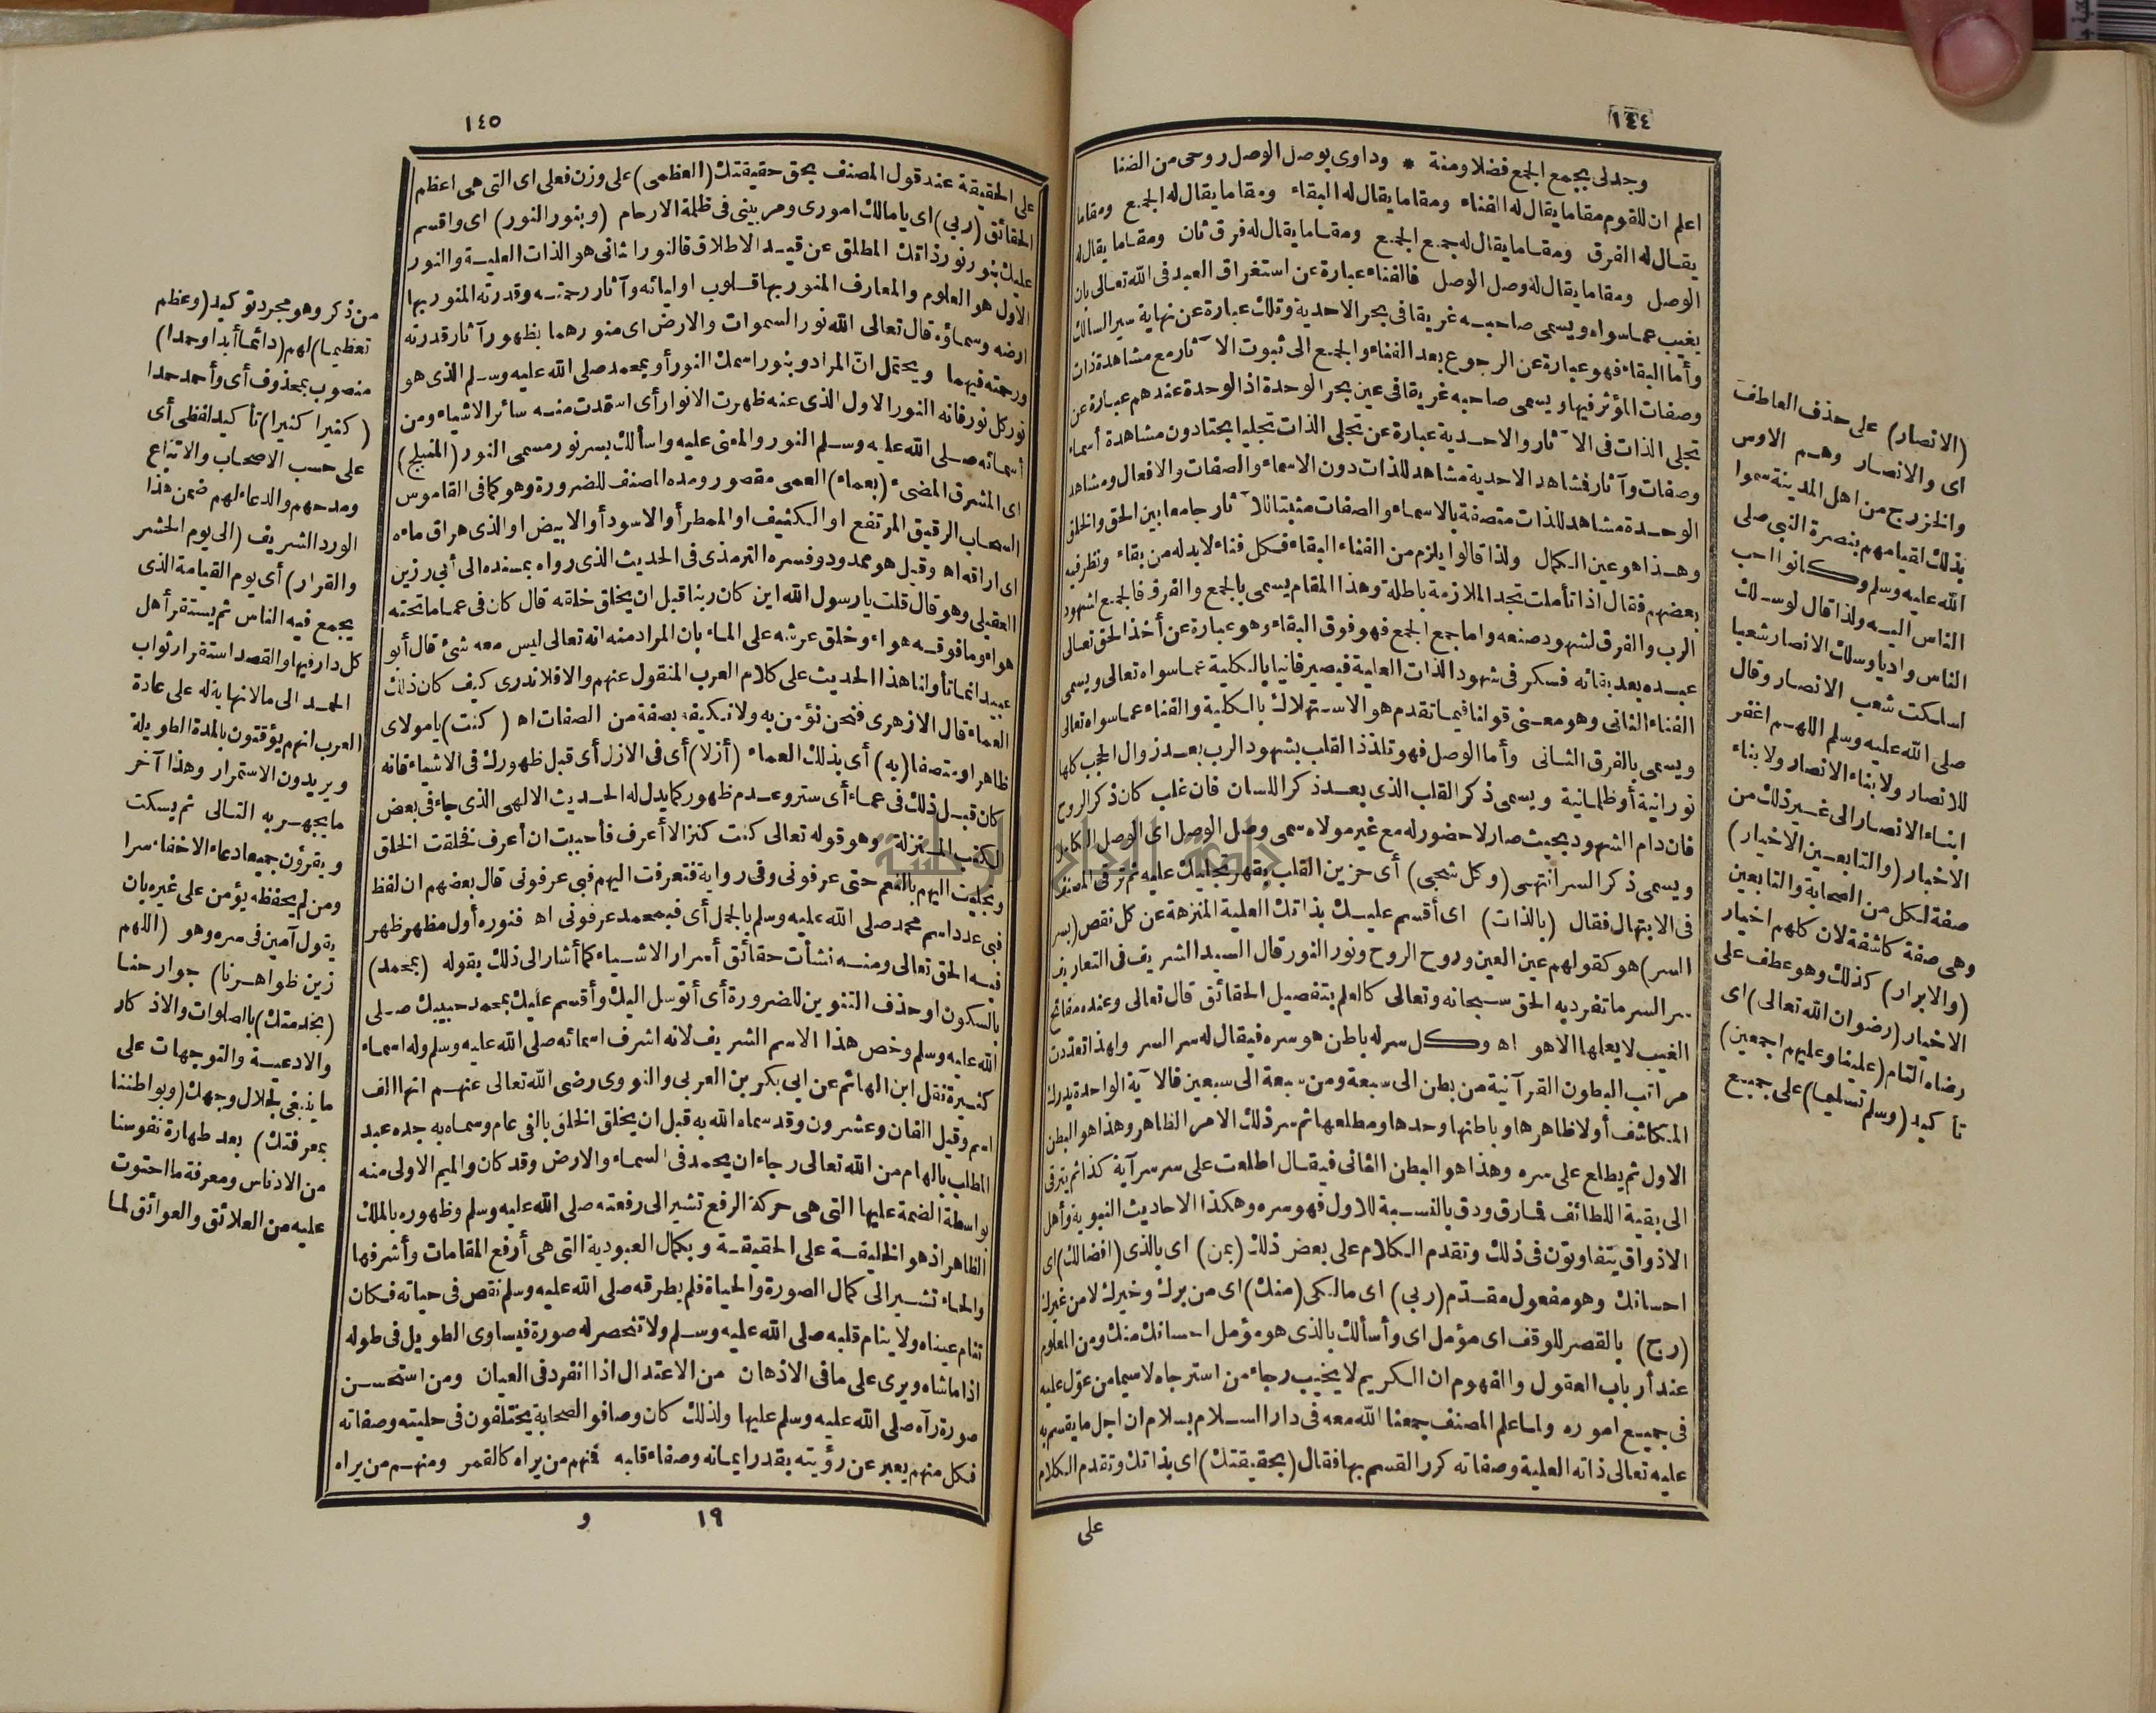 ١٤٤
وجدلى بجمع الجمع فضلا ومنة * وداوى بوصل الوصل روحى من الضنا
اعلم ان للقوم مقاما يقال له الفناء ومقاما يقال له البقاء ومقاما يقال له الجمع ومقاما
يقال له الفرق ومقاما يقال له جمع الجمع ومقاما يقال له فرق ثان ومقاما يقال له
الوصل ومقاما يقال له وصل الوصل فالفناء عبارة عن استغراق العبد فى الله تعالى بان
يغيب عما سواه ويسمى صاحبه غريقا فى بحر الاحدية وتلك عبارة عن نهاية سير السالك
وأما البقاء فهو عبارة عن الرجوع بعد الفناء والجمع الى ثبوت الآثار مع مشاهدة ذات
وصفات المؤثر فيها ويسمى صاحبه غريقا فى عين بحر الوحدة اذ الوحدة عندهم عبارة عن
تجلى الذات فى الآثار والاحدية عبارة عن تجلى الذات تجليا بحتا دون مشاهدة أسماء
وصفات وآثار فمشاهد الاحدية مشاهد للذات دون الاسماء والصفات والافعال ومشاهد
الوحدة مشاهد للذات متصفة بالاسماء والصفات مثبتا للآثار جامعا بين الحق والخلق
وهذا هو عين الكمال ولذا قالوا يلزم من الفناء البقاء فكل فناء لابد له من بقاء ونظر فيه
بعضهم فقال اذا تأملت تجد الملازمة باطلة وهذا المقام يسمى بالجمع والفرق فالجمع لشهود
الرب والفرق لشهود صنعه واما جمع الجمع فهو فوق البقاء وهو عبارة عن أخذ الحق تعالى
عبده بعد بقائه فسكر فى شهود الذات العلية فيصير فانيا بالكلية عما سواه تعالى ويسمى
الفناء الثانى وهو معنى قولنا فيما تقدم هو الاستهلاك بالكلية والفناء عما سواه تعالى
ويسمى بالفرق الثانى وأما الوصل فهو تلذذ القلب بشهود الرب بعد زوال الحجب كلها
نورانية أو ظلمانية ويسمى ذكر القلب الذى بعد ذكر اللسان فان غلب كان ذكر الروح
فان دام الشهود بحيث صار لا حضور له مع غير مولاه سمى وصل الوصل اى الوصل الكامل
ويسمى ذكر السر انتهى (وكل شجى) أى حزين القلب بقهر تجليك عليه ثم ترقى المصنف
فى الابتهال فقال (بالذات) اى أقسم عليك بذاتك العلية المنزهة عن كل نقص (بسر
السر) هو كقولهم عين العين وروح الروح ونور النور قال السيد الشريف فى التعاريف
سر السر ما تفرد به الحق سبحانه وتعالى كالعلم بتفصيل الحقائق قال تعالى وعنده مفاتح
الغيب لا يعلمها الا هو اه وكل سر له باطن هو سره فيقال له سر السر ولهذا تعددت
مراتب البطون القرآنية من بطن الى سبعة ومن سبعة الى سبعين فالآية الواحدة يدرك
المكاشف أولا ظاهرها وباطنها وحدها ومطلعها ثم سر ذلك الامر الظاهر وهذا هو البطن
الاول ثم يطلع على سره وهذا هو البطن الثانى فيقال اطلعت على سر سر آية كذا ثم يترقى
الى بقية اللطائف فما رق ودق بالنسبة للاول فهو سره وهكذا الاحاديث النبوية وأهل
الاذواق يتفاوتون فى ذلك وتقدم الكلام على بعض ذلك (بمن) اى بالذى (افضالك) اى
احسانك وهو مفعول مقدم (ربى) اى مالكى (منك) اى من برك وخيرك لا من غيرك
(رج) بالقصر للوقف اى مؤمل اى وأسألك بالذى هو مؤمل احسانك منك ومن المعلوم
عند أرباب العقول والفهوم ان الكريم لا يخيب رجاء من استرجاه لا سيما من عوّل عليه
فى جميع اموره ولما علم المصنف جمعنا الله معه فى دار السلام بسلام ان اجل ما يقسم به
عليه تعالى ذاته العلية وصفاته كرر القسم بها فقال (بحقيقتك) اى بذاتك وتقدم الكلام
على
(الانصار) على حذف العاطف
اى والانصار وهم الاوس
والخزرج من اهل المدينة سموا
بذلك لقيامهم بنصرة النبى صلى
الله عليه وسلم وكانوا احب
الناس اليه ولذا قال لو سلك
الناس واديا وسلك الانصار شعبا
لسلكت شعب الانصار وقال
صلى الله عليه وسلم اللهم اغفر
للانصار ولابناء الانصار ولابناء
ابناء الانصار الى غير ذلك من
الاخبار (والتابعين الاخيار)
صفة لكل من الصحابة والتابعين
وهى صفة كاشفة لان كلهم اخيار
(والابرار) كذلك وهو عطف على
الاخيار (رضوان الله تعالى) اى
رضاه التام (علينا وعليهم اجمعين)
تأكيد (وسلم تسليما) على جميع
١٤٥
على الحقيقة عند قول المصنف بحق حقيقتك (العظمى) على وزن فعلى اى التى هى اعظم
الحقائق (ربى) اى يا مالك امورى ومربينى فى ظلمة الارحام (وبنور النور) اى واقسم
عليك بنور نور ذاتك المطلق عن قيد الاطلاق فالنور الثانى هو الذات العلية والنور
الاول هو العلوم والمعارف المنور بها قلوب اوليائه وآثار رحمته وقدرته المنور بها
ارضه وسماؤه قال تعالى الله نور السموات والارض اى منورهما بظهور آثار قدرته
ورحمته فيهما ويحتمل ان المراد وبنور اسمك النور أو بمحمد صلى الله عليه وسلم الذى هو
نور كل نور فانه النور الاول الذى عنه ظهرت الانوار أى استمدت منه سائر الاشياء ومن
أسمائه صلى الله عليه وسلم النور والمعنى عليه وأسألك بسر نور مسمى النور (المنبلج)
اى المشرق المضىء (بعماء) العمى مقصور ومده المصنف للضرورة وهو كما فى القاموس
السحاب الرقيق المرتفع او الكثيف او الممطر أو الاسود أو الابيض او الذى هراق ماءه
اى اراقه اه وقيل هو ممدود وفسره الترمذى فى الحديث الذى رواه بسنده الى أبى رزين
العقيلى وهو قال قلت يا رسول الله اين كان ربنا قبل ان يخلق خلقه قال كان فى عماء ما تحته
هواء وما فوقه هواء وخلق عرشه على الماء بان المراد منه انه تعالى ليس معه شئ قال أبو
عبيد انما تأولنا هذا الحديث على كلام العرب المنقول عنهم والا فلا ندرى كيف كان ذلك
العماء قال الازهرى فنحن نؤمن به ولا نكيفه بصفة من الصفات اه (كنت) يا مولاى
ظاهرا ومتصفا (به) أى بذلك العماء (أزلا) أى فى الازل أى قبل ظهورك فى الاشياء فانه
كان قبل ذلك فى عماء أى ستر وعدم ظهور كما يدل له الحديث الالهى الذى جاء فى بعض
الكتب المنزلة وهو قوله تعالى كنت كنزا لا أعرف فأحببت ان أعرف فخلقت الخلق
وتجليت اليهم بالنعم حتى عرفونى وفى رواية فتعرفت اليهم فبى عرفونى قال بعضهم ان لفظ
فبى عدد اسم محمد صلى الله عليه وسلم بالجمل أى فبمحمد عرفونى اه فنوره أول مظهر ظهر
فيه الحق تعالى ومنه نشأت حقائق أسرار الاشياء كما أشار الى ذلك بقوله (بمحمد)
بالسكون او حذف التنوين للضرورة أى أتوسل اليك وأقسم عليك بمحمد حبيبك صلى
الله عليه وسلم وخص هذا الاسم الشريف لانه اشرف اسمائه صلى الله عليه وسلم وله اسماء
كثيرة نقل ابن الهائم عن ابى بكر بن العربى والنووى رضى الله تعالى عنهم انها الف
اسم وقيل الفان وعشرون وقد سماه الله به قبل ان يخلق الخلق بالفى عام وسماه به جده عبد
المطلب بالهام من الله تعالى رجاء ان يحمد فى السماء والارض وقد كان والميم الاولى منه
بواسطة الضمة عليها التى هى حركة الرفع تشير الى رفعته صلى الله عليه وسلم وظهوره بالملك
الظاهر اذ هو الخليفة على الحقيقة وبكمال العبودية التى هى أرفع المقامات وأشرفها
والحاء تشير الى كمال الصورة والحياة فلم يطرقه صلى الله عليه وسلم نقص فى حياته فكان
تنام عيناه ولا ينام قلبه صلى الله عليه وسلم ولا تنحصر له صورة فيساوى الطويل فى طوله
اذا ماشاه ويرى على ما فى الاذهان من الاعتدال اذا انفرد فى العيان ومن استحسن
صورة رآه صلى الله عليه وسلم عليها ولذلك كان وصافو الصحابة يختلفون فى حليته وصفاته
فكل منهم يعبر عن رؤيته بقدر ايمانه وصفاء قلبه فمنهم من يراه كالقمر ومنهم من يراه
١٩ و
من ذكر وهو مجرد توكيد (وعظم
تعظيما) لهم (دائما أبدا وحمدا)
منصوب بمحذوف أى وأحمد حمدا
(كثيرا كثيرا) تأكيد لفظى أى
على حسب الاصحاب والاتباع
ومدحهم والدعاء لهم ضمن هذا
الورد الشريف (الى يوم الحشر
والقرار) أى يوم القيامة الذى
يجمع فيه الناس ثم يستقر أهل
كل دار فيها والقصد استقرار ثواب
الحمد الى ما لا نهاية له على عادة
العرب انهم يؤقتون بالمدة الطويلة
ويريدون الاستمرار وهذا آخر
ما يجهر به التالى ثم يسكت
ويقرؤن جميعا دعاء الاخفاء سرا
ومن لم يحفظه يؤمن على غيره بان
يقول آمين فى سره وهو (اللهم
زين ظواهرنا) جوارحنا
(بخدمتك) بالصلوات والاذكار
والادعية والتوجهات على
ما ينبغى لجلال وجهك (وبواطننا
بمعرفتك) بعد طهارة نفوسنا
من الادناس ومعرفة ما احتوت
عليه من العلائق والعوائق لما